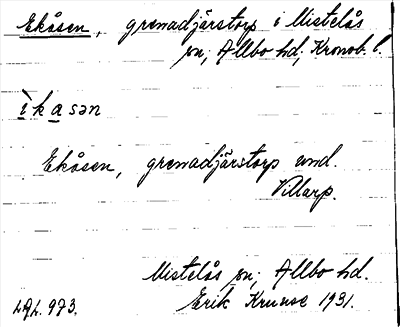 Ekåsen, grenadjärstorp i Mistelås
sn, Allbo hd, Kronob. l.
ìkasən
Ekåsen, grenadjärstorp und.
Villarp.
Mistelås sn, Allbo hd.
LAL. 973. Erik Krunse 1931.